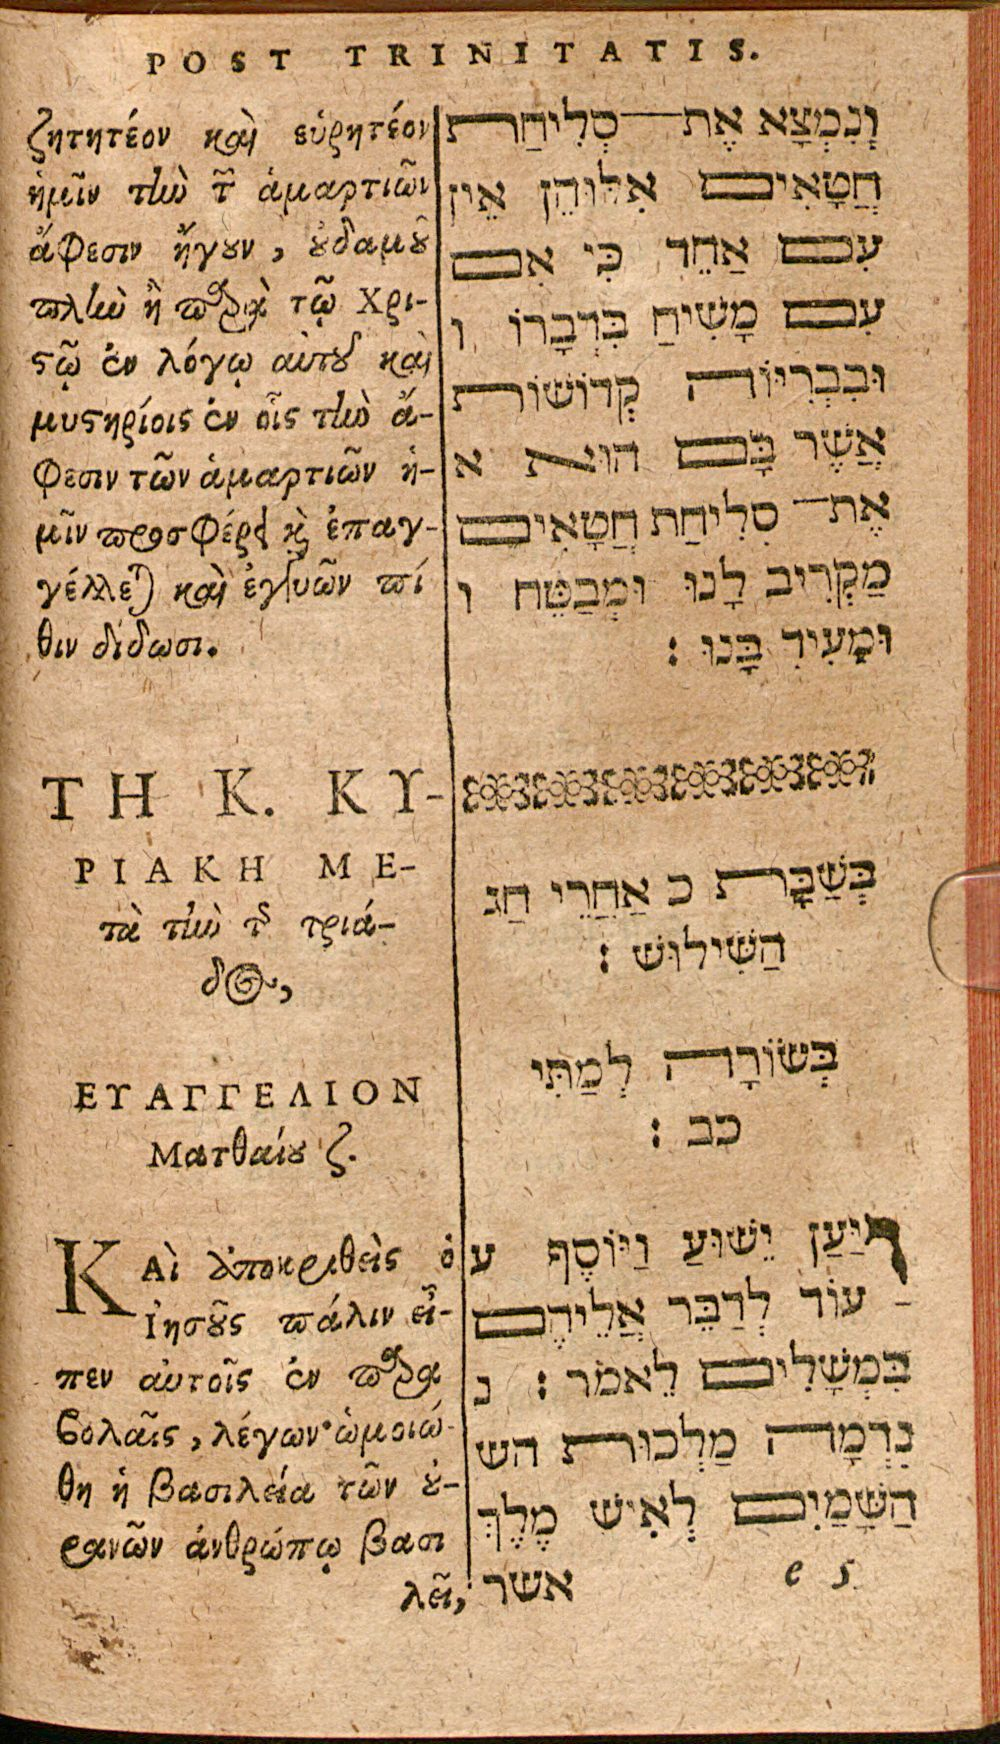 POST TRINITATIS.
ζητητέον καὶ εὑρητέον
ἡμῖν τὴν τῶν ἁμαρτιῶν
ἄφεσιν ἤγουν, οὐδαμοῦ
πλὴν ἢ παρὰ τῷ Χρι-
στῷ ἐν λόγῳ αὐτοῦ καὶ
μυστηρίοις ἐν οἷς τὴν ἄ-
φεσιν τῶν ἁμαρτιῶν ἡ-
μῖν προσφέρει καὶ ἐπαγ-
γέλλεται καὶ ἐγγυῶν πί
θιν δίδωσι.
ΤΗ Κ. ΚΥ-
ΡΙΑΚΗ ΜΕ-
τὰ τὴν τῆς τριά-
δος,
ΕΥΑΓΓΕΛΙΟΝ
Ματθαίου ζ.
Καὶ ἀποκριθεὶς ὁ
Ἰησοῦς πάλιν εἶ-
πεν αὐτοῖς ἐν παρα
βολαῖς, λέγων· ὡμοιώ-
θη ἡ βασιλεία τῶν οὐ-
ρανῶν ἀνθρώπῳ βασι
λεῖ,
וְנִמְצָא אֶת סְלִיחַת
חֲטָאִים אִלּוּהֵן אֵין
עִם אַחֵר כִּי אִם
עִם מָשִׁיחַ בִּדְבָרוֹ ו
וּבִבְרִיּוֹה קְדוֹשׁוֹת
אֲשֶׁר בָּם הוּא א
אֶת סְלִיחַת חֲטָאִים
מַקְרִיב לָנוּ וּמְבַטֵּח ו
וּמָעִיד בָּנוּ :
בְּשַׁבָּת כ אַחֲרֵי חַג
הַשִּׁילוּשׁ :
בְּשׂוֹרָה לְמַתִּי
כב :
וַיַּעַן יֵשׁוּעַ וַיּוֹסֶף ע
עוֹד לְדַבֵּר אֲלֵיהֶם
בִּמְשָׁלִים לֵאמֹר : נ
נִדְמָה מַלְכוּת הש
הַשָּׁמַיִם לְאִישׁ מֶלֶךְ
אשר
e 5.